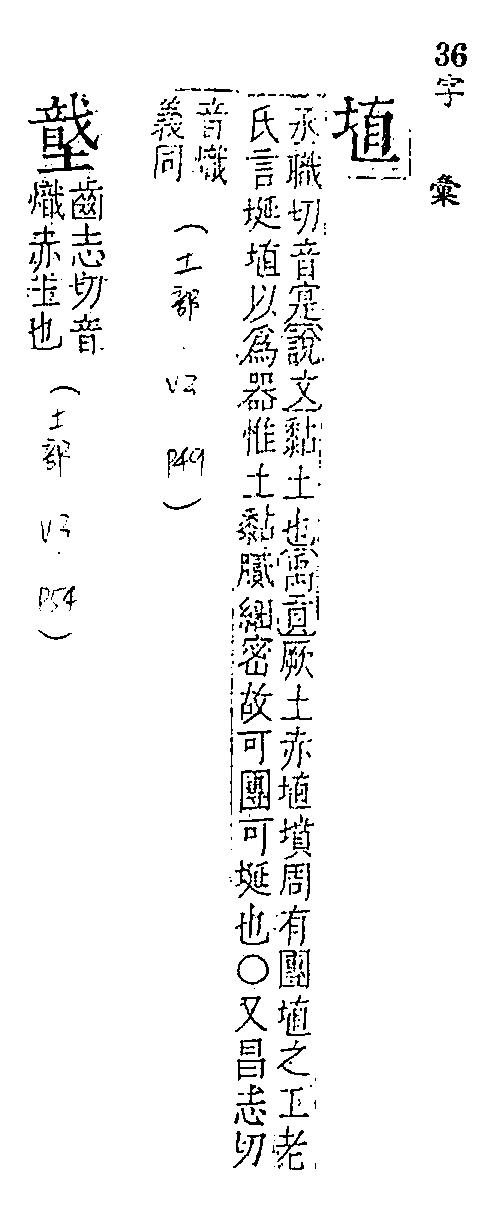 36
字彙
埴
承職切音寔說文黏土也禹貢厥土赤埴墳周有團埴之工老
氏言埏埴以為器惟土黏膩細密故可團可埏也○又昌志切
音熾
義同
(土部．V3 P49)
戠土
齒志切音
熾赤土也
(土部 V3. P54)